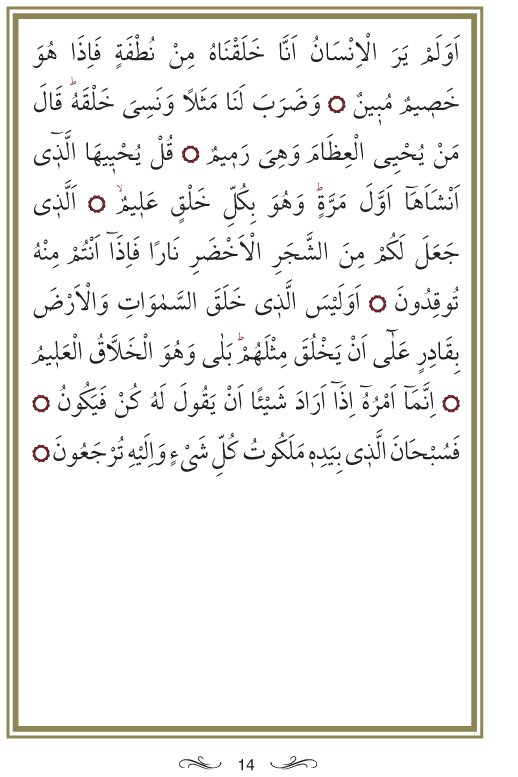 اَوَلَمْ يَرَ الْاِنْسَانُ اَنَّا خَلَقْنَاهُ مِنْ نُطْفَةٍ فَاِذَا هُوَ
خَص۪يمٌ مُب۪ينٌ ۝ وَضَرَبَ لَنَا مَثَلًا وَنَسِيَ خَلْقَهُۜ قَالَ
مَنْ يُحْيِي الْعِظَامَ وَهِيَ رَم۪يمٌ ۝ قُلْ يُحْي۪يهَا الَّذ۪ٓي
اَنْشَاَهَٓا اَوَّلَ مَرَّةٍۜ وَهُوَ بِكُلِّ خَلْقٍ عَل۪يمٌۙ ۝ اَلَّذ۪ي
جَعَلَ لَكُمْ مِنَ الشَّجَرِ الْاَخْضَرِ نَارًا فَاِذَٓا اَنْتُمْ مِنْهُ
تُوقِدُونَ ۝ اَوَلَيْسَ الَّذ۪ي خَلَقَ السَّمٰوَاتِ وَالْاَرْضَ
بِقَادِرٍ عَلٰٓى اَنْ يَخْلُقَ مِثْلَهُمْۜ بَلٰى وَهُوَ الْخَلَّاقُ الْعَل۪يمُ
۝ اِنَّمَٓا اَمْرُهُٓ اِذَٓا اَرَادَ شَيْـًٔا اَنْ يَقُولَ لَهُ كُنْ فَيَكُونُ ۝
فَسُبْحَانَ الَّذ۪ي بِيَدِه۪ مَلَكُوتُ كُلِّ شَيْءٍ وَاِلَيْهِ تُرْجَعُونَ ۝
14